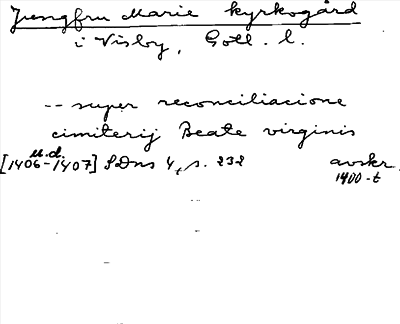 Jungfru Marie kyrkogård
i Visby, Gotl. l.
-- super reconciliacione
cimiterij Beate virginis
u.d.
[1406-1407] SDns 1, s. 232 avskr.
1400-t